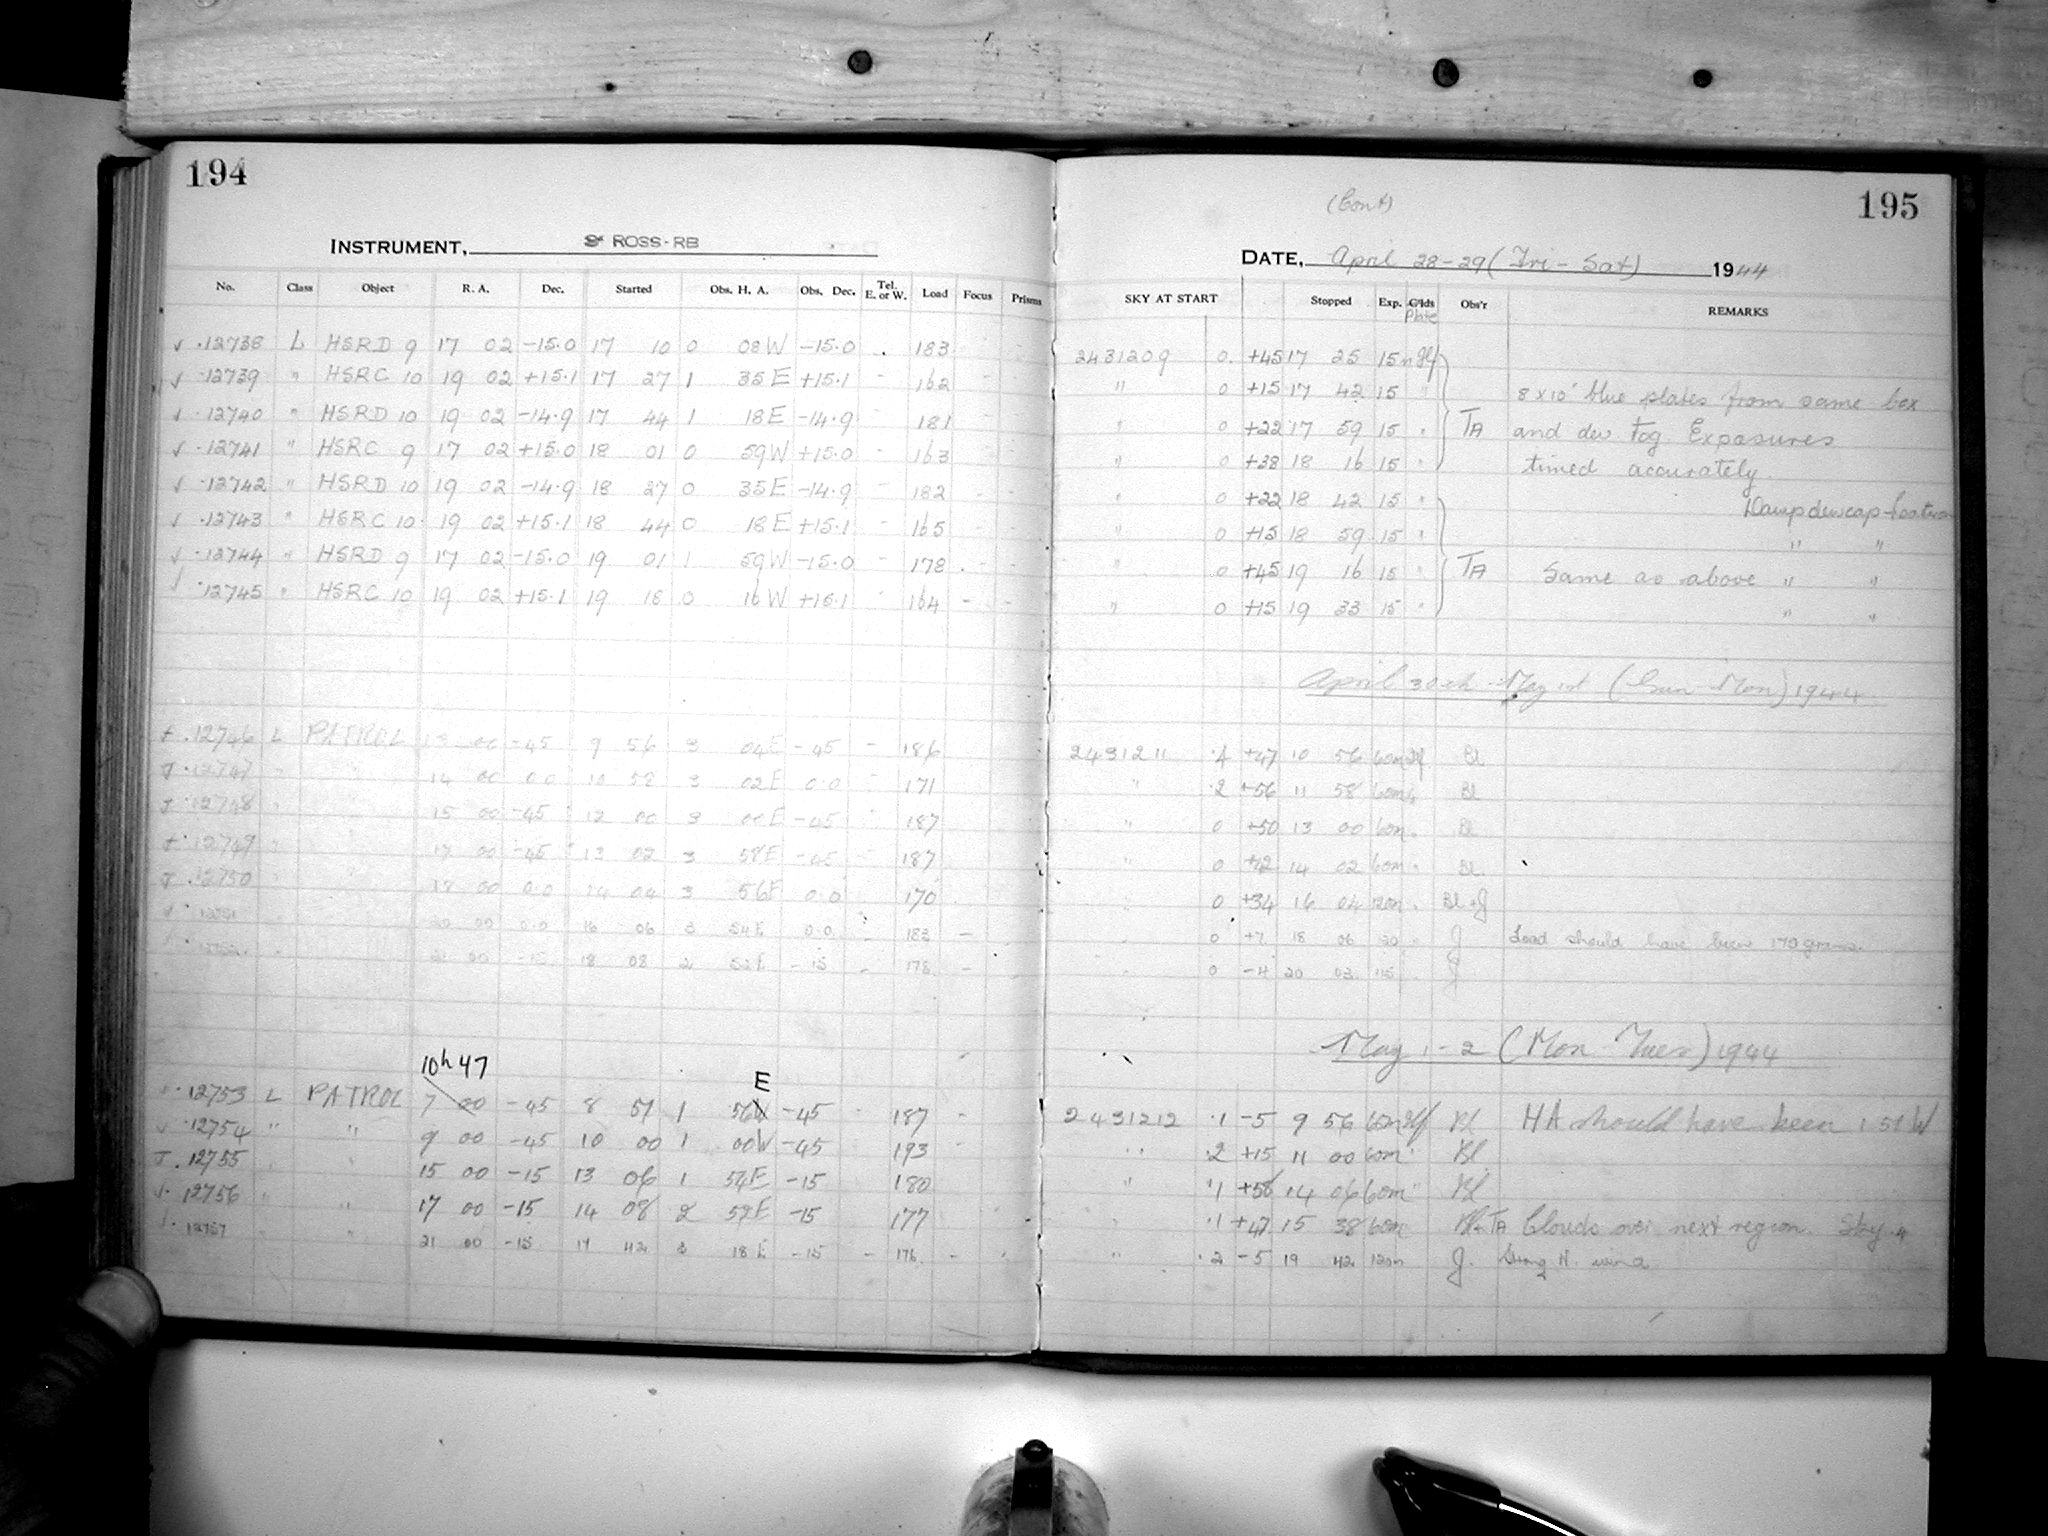 194
INSTRUMENT, ROSS-RB
No. Class Object R. A. Dec. Started Obs. H. A. Obs. Dec. Tel. E. or W. Load Focus Prisms
12738 L HSRD 9 17 02 -15.0 17 10 0 08 W -15.0 183
12739 " HSRC 10 19 02 +15.1 17 27 1 35 E +15.1 162
12740 " HSRD 10 19 02 -14.9 17 44 1 18 E -14.9 181
12741 " HSRC 9 17 02 +15.0 18 01 0 59 W +15.0 163
12742 " HSRD 10 19 02 -14.9 18 27 0 35 E -14.9 182
12743 " HSRC 10 19 02 +15.1 18 44 0 18 E +15.1 165
12744 " HSRD 9 17 02 -15.0 19 01 1 59 W -15.0 178
12745 " HSRC 10 19 02 +15.1 19 18 0 16 W +15.1 164
12746 L PATROL 13 00 -45 9 56 3 04 E -45 186
12747 " " 14 00 0.0 10 58 3 02 E 0.0 171
12748 " " 15 00 -45 12 00 3 00 E -45 187
12749 " " 17 00 -45 13 02 3 58 E -45 187
12750 " " 18 00 0.0 14 04 3 56 E 0.0 170
12751 20 00 0.0 16 06 3 54 E 0.0 183
12752 21 00 -15 18 08 2 52 E -15 178
10h 47
E
12753 L PATROL 7 00 -45 8 51 1 56 W -45 187
12754 " " 9 00 -45 10 00 1 00 W -45 193
12755 15 00 -15 13 06 1 54 E -15 180
12756 " " 17 00 -15 14 08 2 52 E -15 177
12757 " 21 00 -15 17 42 3 18 E -15 176
195
(Cont)
DATE, April 28-29 (Fri - Sat) 1944
SKY AT START Stopped Exp. Plate Obs'r REMARKS
2431209 0 +45 17 25 15m
" 0 +15 17 42 15 8 x 10" blue plates from same box
" 0 +22 17 59 15 TA and dev tog. Exposures
" 0 +38 18 16 15 timed accurately.
" 0 +22 18 42 15 Damp dewcap
" 0 +15 18 59 15 " "
" 0 +45 19 16 15 TA Same as above " "
" 0 +15 19 33 15 " "
April 30th - May 1st (Sun - Mon) 1944
2431211 +47 10 56 60m Bl
" .2 +56 11 58 60m Bl
" 0 +50 13 00 60m Bl
" 0 +42 14 02 60m Bl
" 0 +34 16 04 120m Bl + J
0 +7 18 06 J Load should have been 170 grams.
0 -4 20 03 115 J
May 1-2 (Mon - Tues) 1944
2431212 .1 -5 9 56 60m Bl HA should have been 1 51 W
" .2 +15 11 00 60m Bl
" .1 +58 14 06 60m " Bl
.1 +47 15 38 60m Bl + TA Clouds over next region. Sky
" .2 -5 19 42 120m J. Strong N. wind